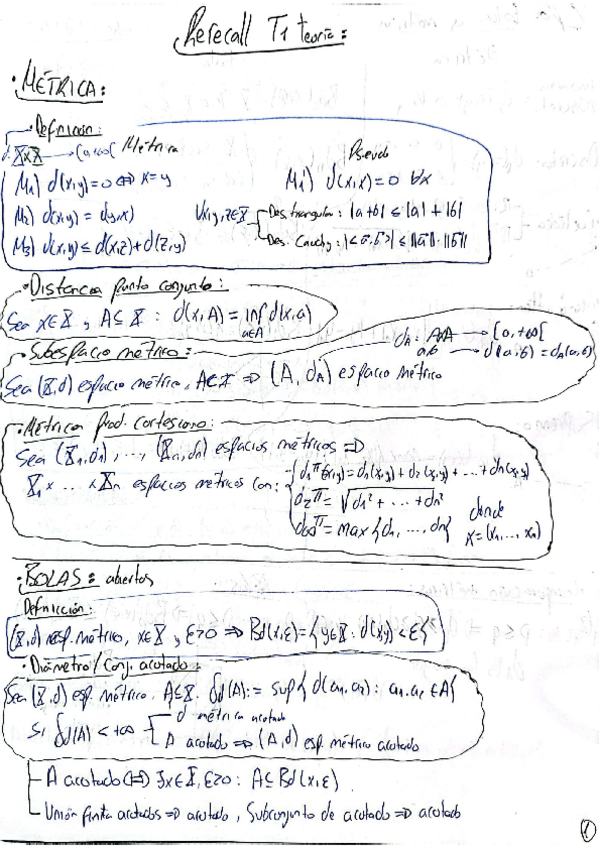 Refecall T1 teoría:
· MÉTRICA:
Definición:
d: X×X → [0,+∞[ Métrica
Pseudo
M1) d(x,y)=0 ⇔ x=y
M1') d(x,x)=0 ∀x
M2) d(x,y) = d(y,x)
∀x,y,z∈X
Des. triangular: |a+b| ≤ |a| + |b|
M3) d(x,y) ≤ d(x,z) + d(z,y)
Des. Cauchy: |<a,b>| ≤ ||a||·||b||
· Distancia punto conjunto:
Sea x∈X, A⊆X : d(x,A) = inf d(x,a)
a∈A
· Subespacio métrico:
dA: A×A → [0,+∞[
a,b → d(a,b) = dA(a,b)
Sea (X,d) espacio métrico, A⊆X ⇒ (A, dA) espacio métrico
· Métrica prod. cartesiano:
Sea (X1,d1), ..., (Xn,dn) espacios métricos ⇒
X1 × ... × Xn espacios métricos con:
d1^π(x,y) = d1(x,y) + d2(x,y) + ... + dn(x,y)
d2^π = √(d1² + ... + dn²)
d∞^π = max {d1, ..., dn}
donde
x=(x1,...,xn)
· BOLAS: abiertas
Definición:
(X,d) esp. métrico, x∈X, ε>0 ⇒ Bd(x,ε) = {y∈X : d(x,y) < ε}
· Diámetro / Conj. acotado:
Sea (X,d) esp. métrico, A⊆X. δd(A) := sup{d(a1,a2) : a1,a2 ∈A}
Si δd(A) < +∞
d métrica acotada
A acotado ⇒ (A,d) esp. métrico acotado
A acotado ⇔ ∃x∈X, ε>0 : A⊆Bd(x,ε)
Unión finita acotados ⇒ acotado, Subconjunto de acotado ⇒ acotado
1